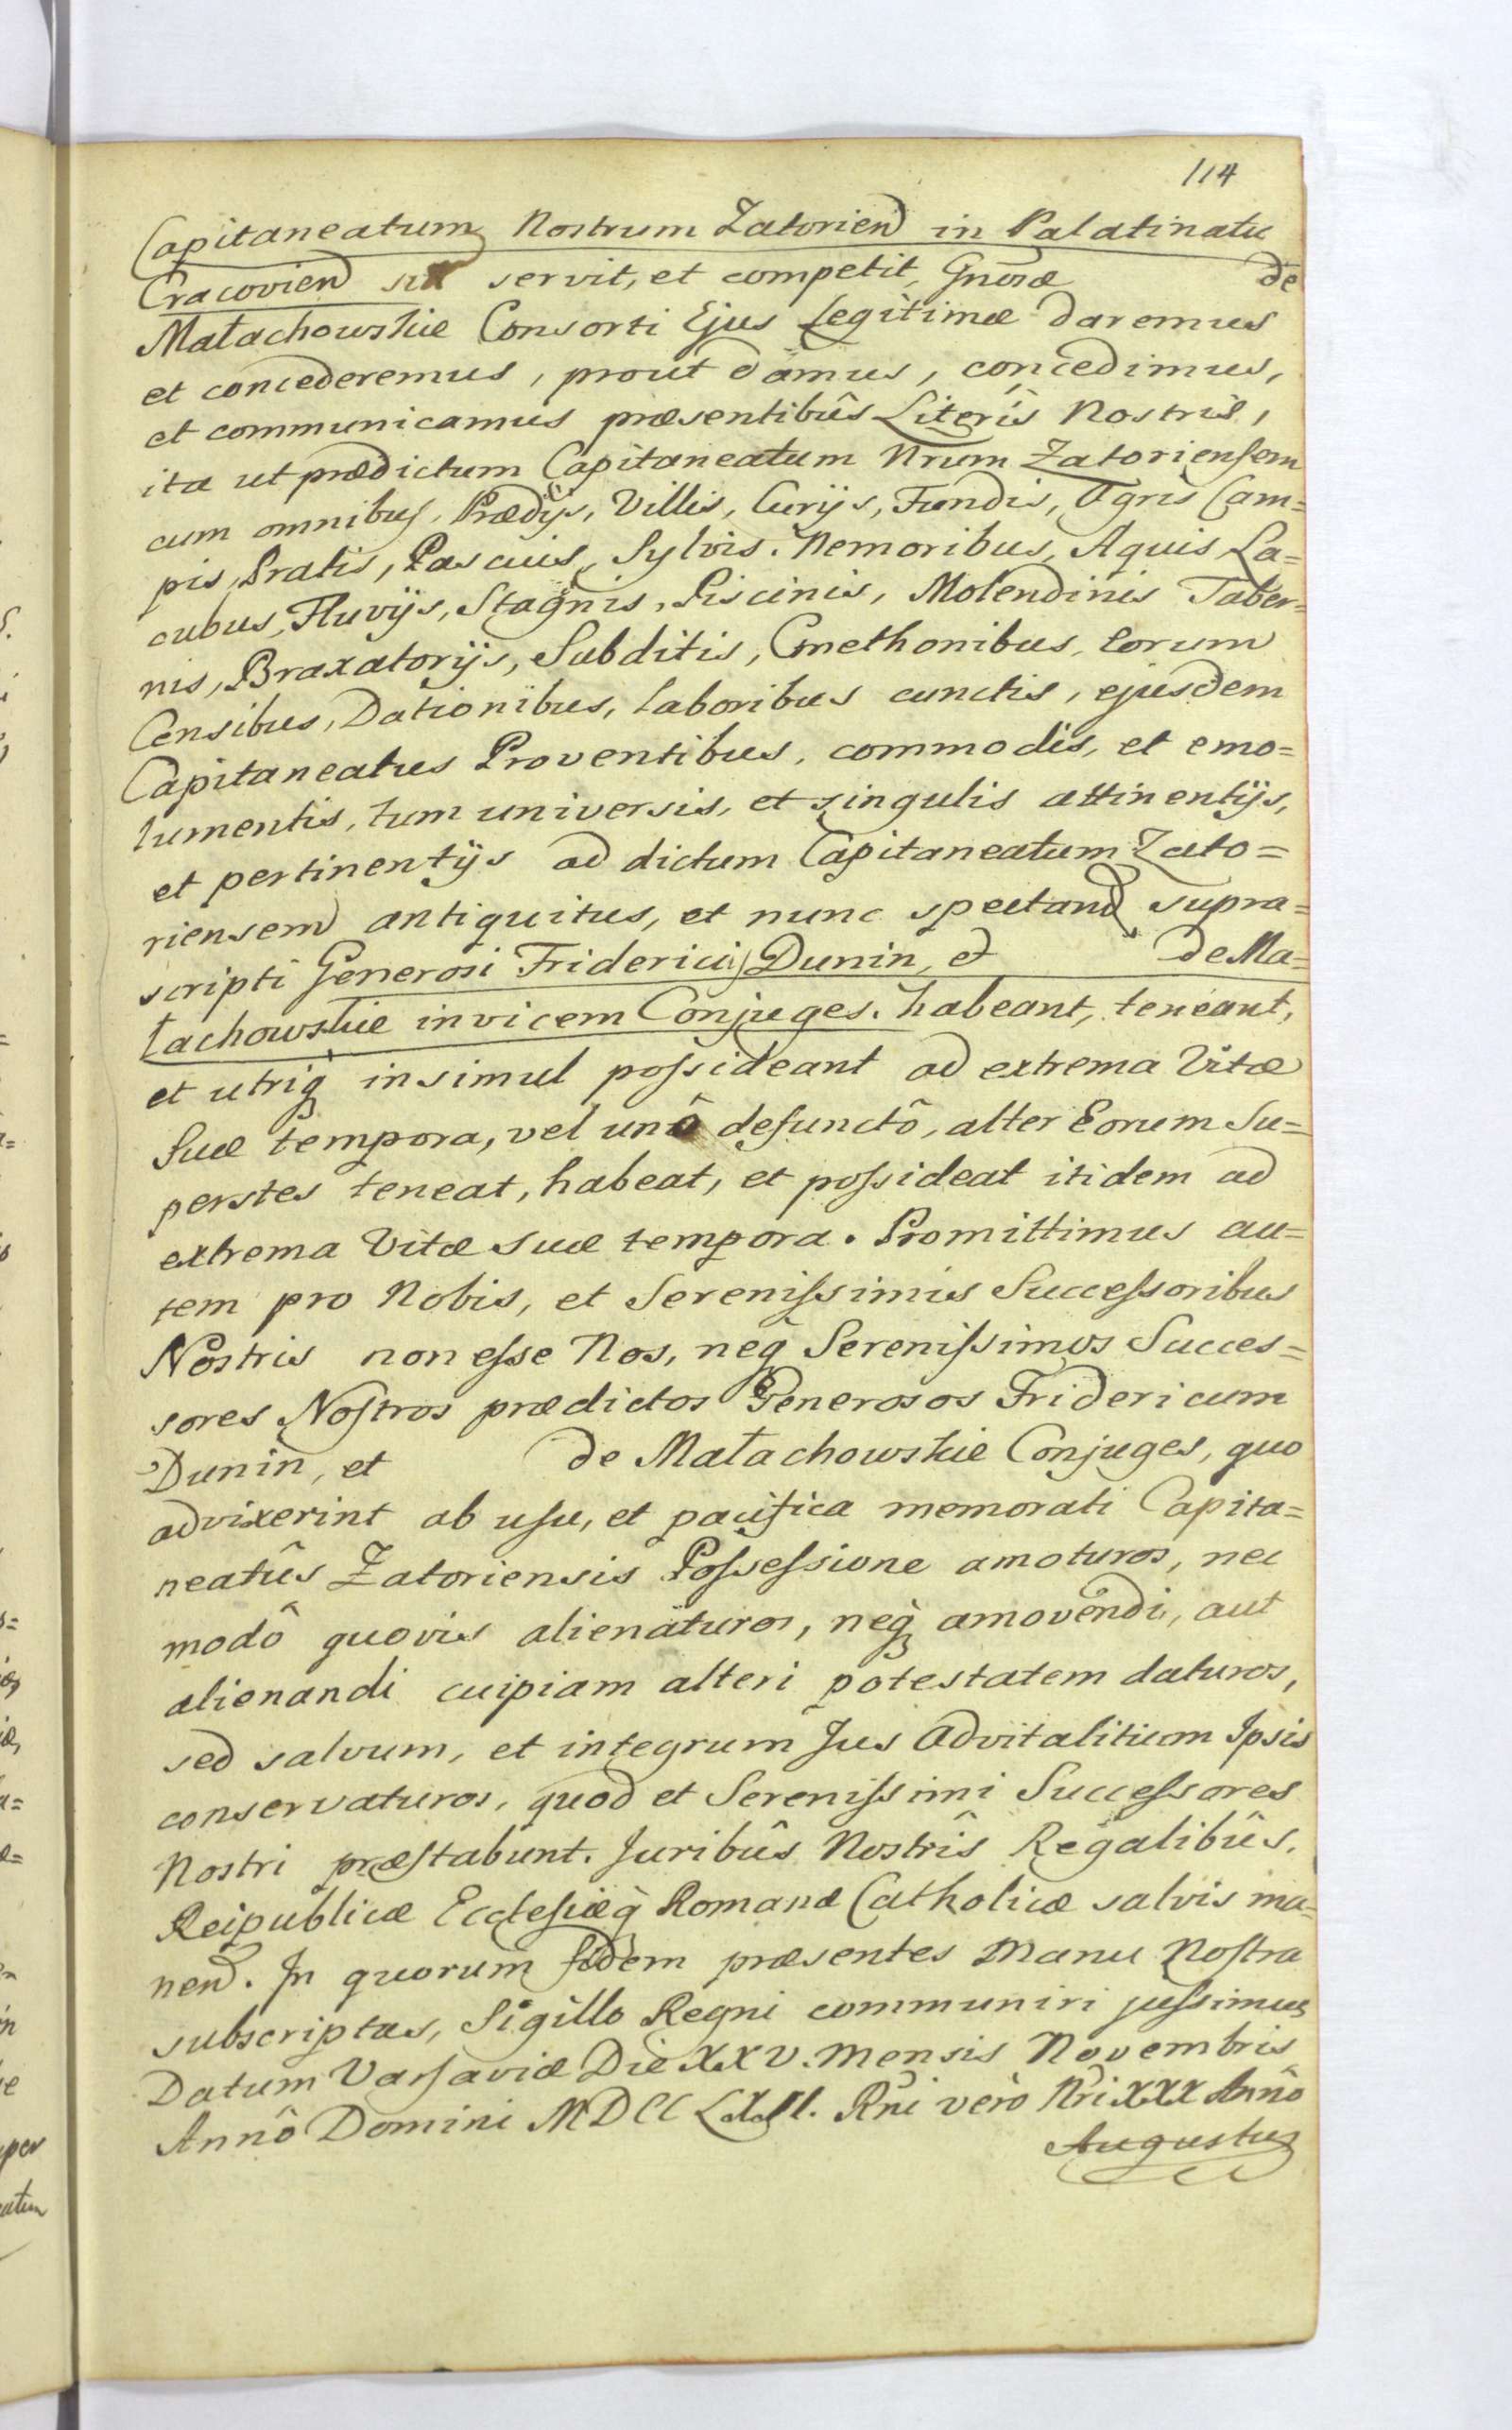 114
Capitaneatum Nostrum Zatorien in Palatinatu
Cracovien servit, et competit, Gnosæ de
Małachowskie Consorti Ejus Legitimæ daremus
et concederemus, prout damus, concedimus,
et communicamus præsentibûs Literis Nostris,
ita ut prædictum Capitaneatum Nrum Zatoriensem
cum omnibus, Prædijs, Villis, Curijs, Fundis, Agris Cam=
pis, Pratis, Pascuis, Sylvis, Nemoribus, Aquis La=
cubus, Fluvijs, Stagnis, Piscinis, Molendinis Taber=
nis, Braxatorijs, Subditis, Cmethonibus, Eorum
Censibus, Dationibus, Laboribus cunctis, ejusdem
Capitaneatus Proventibus, commodis, et emo=
lumentis, tum universis, et singulis attinentijs,
et pertinentijs ad dictum Capitaneatum Zato=
riensem antiquitus, et nunc spectand supra=
scripti Generosi Friderici Dunin, et de Ma=
łachowskie invicem Conjuges, habeant, teneant,
et utriq insimul possideant ad extrema Vitæ
Suæ tempora, vel unô defunctô, alter Eorum Su=
perstes teneat, habeat, et possideat itidem ad
extrema Vitæ Suæ tempora. Promittimus au=
tem pro Nobis, et Serenissimis Successoribus
Nostris non esse Nos, neq Serenissimos Succes=
sores Nostros prædictos Generosos Fridericum
Dunin, et de Małachowskie Conjuges, quo
advixerint ab usu, et pacifica memorati Capita=
neatûs Zatoriensis Possessione amoturos, nec
modô quovis alienaturos, neq amovendi, aut
alienandi cuipiam alteri potestatem daturos,
sed salvum, et integrum Jus Advitalitium Ipsis
conservaturos, quod et Serenissimi Successores
Nostri præstabunt. Juribûs Nostrîs Regalibûs,
Reipublicæ Ecclesiæq Romanæ Catholicæ salvis ma=
nend. In quorum fidem præsentes Manu Nostra
subscriptas, Sigillo Regni communiri jussimus
Datum Varsaviæ Die XXV. Mensis Novembris
Annô Domini MDCCLXII. Rni verò Nri XXX Annô
Augustus